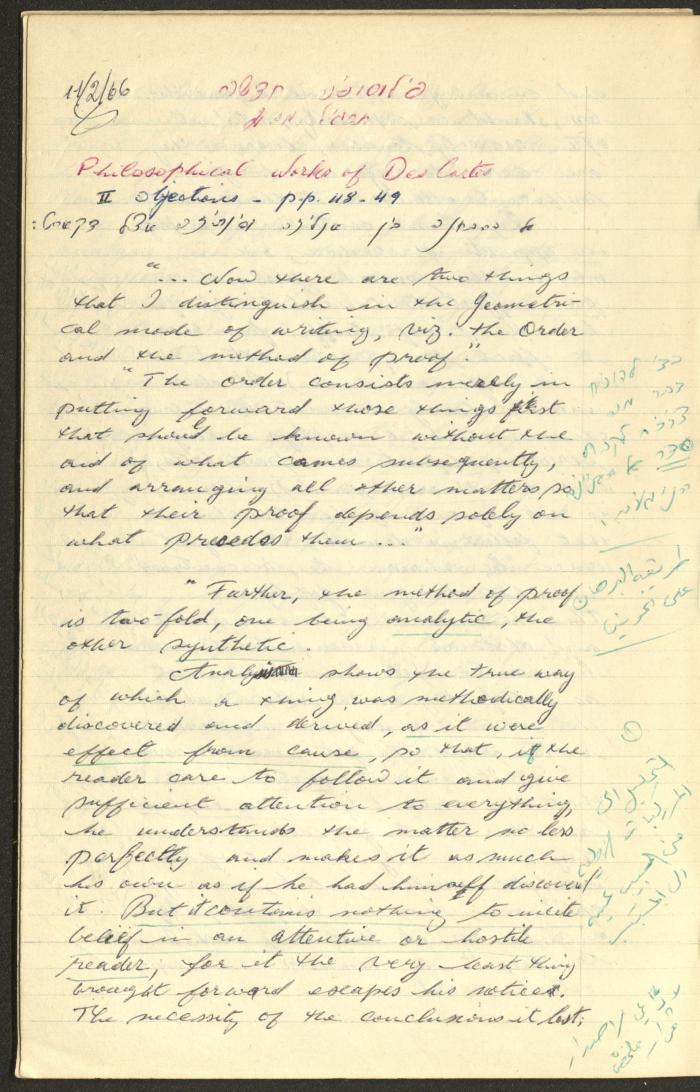 11/2/66
פילוסופיה חדשה
Philosophical Works of Des Cartes
II Objections - p.p. 48-49
על ההבחנה בין אנליזה וסינתזה אצל דקארט:
"... Now there are two things
that I distinguish in the Geometri-
cal mode of writing, viz. the Order
and the method of proof."
"The order consists merely in
putting forward those things first
that should be known without the
aid of what comes subsequently,
and arranging all other matters so
that their proof depends solely on
what precedes them ..."
"Further, the method of proof
is two-fold, one being analytic, the
other synthetic.
Analysis shows the true way
of which a thing was methodically
discovered and derived, as it were
effect from cause, so that, if the
reader care to follow it and give
sufficient attention to everything,
he understands the matter no less
perfectly and makes it as much
his own as if he had himself discovered
it. But it contains nothing to incite
belief in an attentive or hostile
reader; for it the very least thing
brought forward escapes his notice.
The necessity of the conclusions it lost;
طريقة البرهان
على نحوين
①